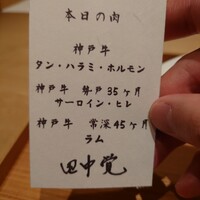 本日の肉
神戸牛
タン・ハラミ・ホルモン
神戸牛 勢戸35ヶ月
サーロイン・ヒレ
神戸牛 常深45ヶ月
ラム
田中覚